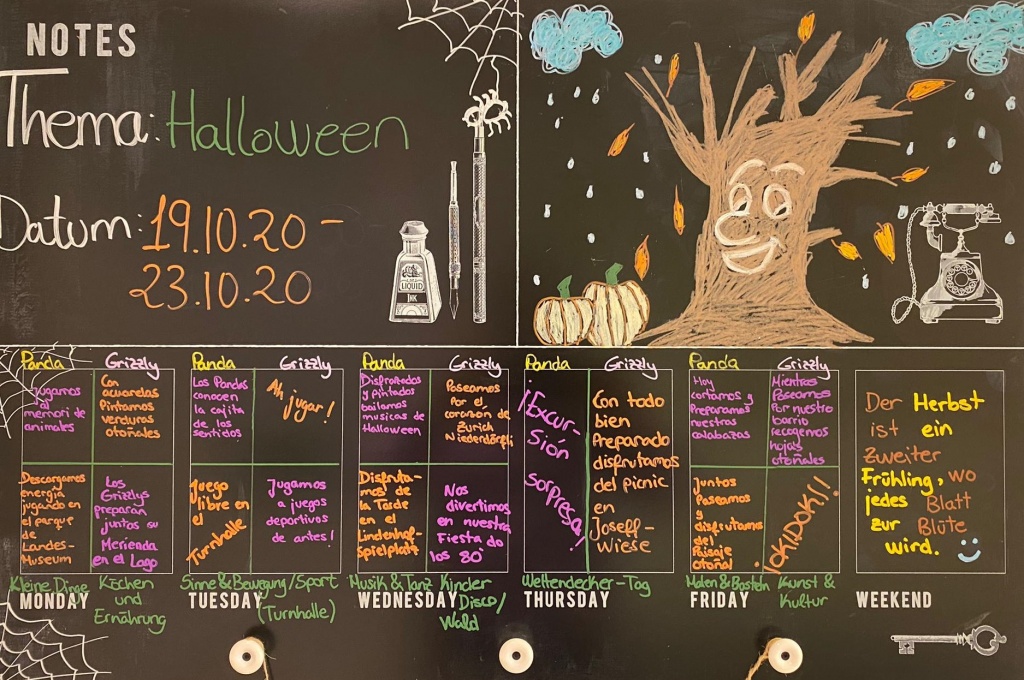 NOTES
Thema: Halloween
Datum: 19.10.20 -
23.10.20
LIQUID
INK
Panda
Grizzly
Jugamos
al
memori de
animales
Con
acuarelas
Pintamos
verduras
otoñales
Descargamos
energia
jugando en
el parque
de
Landes-
Museum
Los
Grizzlys
preparan
juntos su
Merienda
en el Lago
Kleine Dinge
Kochen
und
Ernährung
MONDAY
Panda
Grizzly
Los Pandas
conocen
la cajita
de los
sentidos
Ah,
jugar!
Juego
libre en
el
Turnhalle
Jugamos
a juegos
deportivos
de antes!
Sinne & Bewegung/Sport
(Turnhalle)
TUESDAY
Panda
Grizzly
Disfrazados
y Pintados
bailamos
musicas de
Halloween
Paseamos
Por el
corazón de
Zurich
Niederdörfli
Disfruta-
mos de
la Tarde
en el
Lindenhof-
spielplatz
Nos
divertimos
en nuestra
Fiesta de
los 80
Musik & Tanz
Kinder
Disco/
Wald
WEDNESDAY
Panda
Grizzly
¡Excur-
sión
sorpresa!
Con todo
bien
Preparado
disfrutamos
del picnic
en
Joseff-
Wiese
Wettendecker-Tag
THURSDAY
Panda
Grizzly
Hoy
cortamos y
Preparamos
nuestras
calabazas
Mientras
Paseamos
Por nuestro
barrio
recogemos
hojas
otoñales
Juntos
Paseamos
y
disfrutamos
del
Paisaje
otoñal
¡OKIDOKI!!
Malen & Basteln
Kunst &
Kultur
FRIDAY
Der Herbst
ist ein
Zweiter
Frühling, wo
jedes Blatt
zur Blüte
wird.
WEEKEND